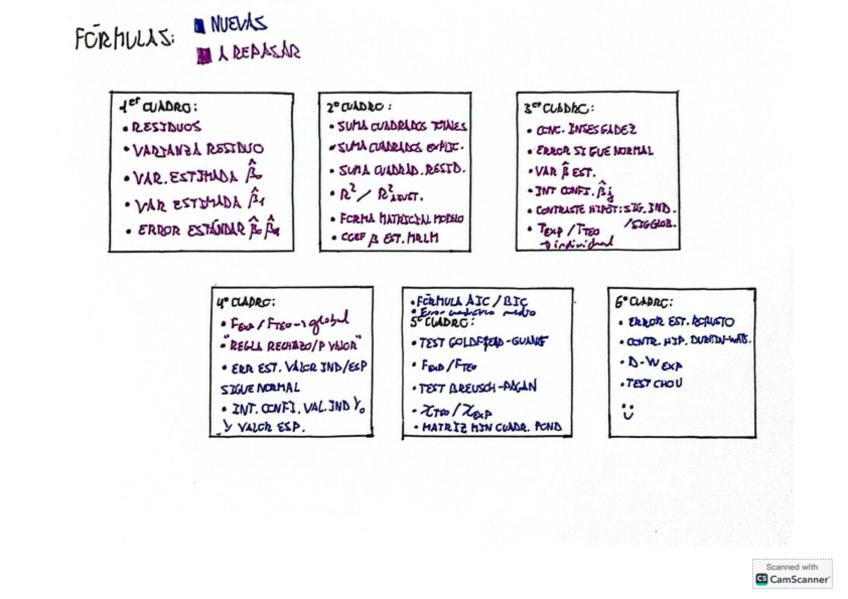 FÓRMULAS:
NUEVAS
A REPASAR
1er CUADRO:
• RESIDUOS
• VARIANZA RESIDUO
• VAR. ESTIMADA β̂₀
• VAR ESTIMADA β̂₁
• ERROR ESTÁNDAR β̂₀ β̂₁
2º CUADRO:
• SUMA CUADRADOS TOTALES
• SUMA CUADRADOS EXPLIC.
• SUMA CUADRAD. RESID.
• R² / R² ADJUST.
• FORMA MATRICIAL MODELO
• COEF β EST. MRLM
3er CUADRO:
• CONC. INSESGADEZ
• ERROR SIGUE NORMAL
• VAR β̂ EST.
• INT CONFI. β̂j
• CONTRASTE HIPÓT: SIG. IND.
/SIG GLOB.
• TEXP / TTEO
→ individual
4º CUADRO:
• FEXP / FTEO → global
• "REGLA RECHAZO/P VALOR"
• ERR EST. VALOR IND/ESP
SIGUE NORMAL
• INT. CONFI. VAL. IND Y₀
Y VALOR ESP.
• FÓRMULA AIC / BIC
• Error cuadrático medio
5º CUADRO:
• TEST GOLDFELD-QUANT
• FEXP/FTEO
• TEST BREUSCH-PAGAN
• χTEO / χEXP
• MATRIZ MIN CUADR. POND
6º CUADRO:
• ERROR EST. ROBUSTO
• CONTR. HIP. DURBIN-WATS.
• D-W EXP
• TEST CHOU
Scanned with
CS CamScanner